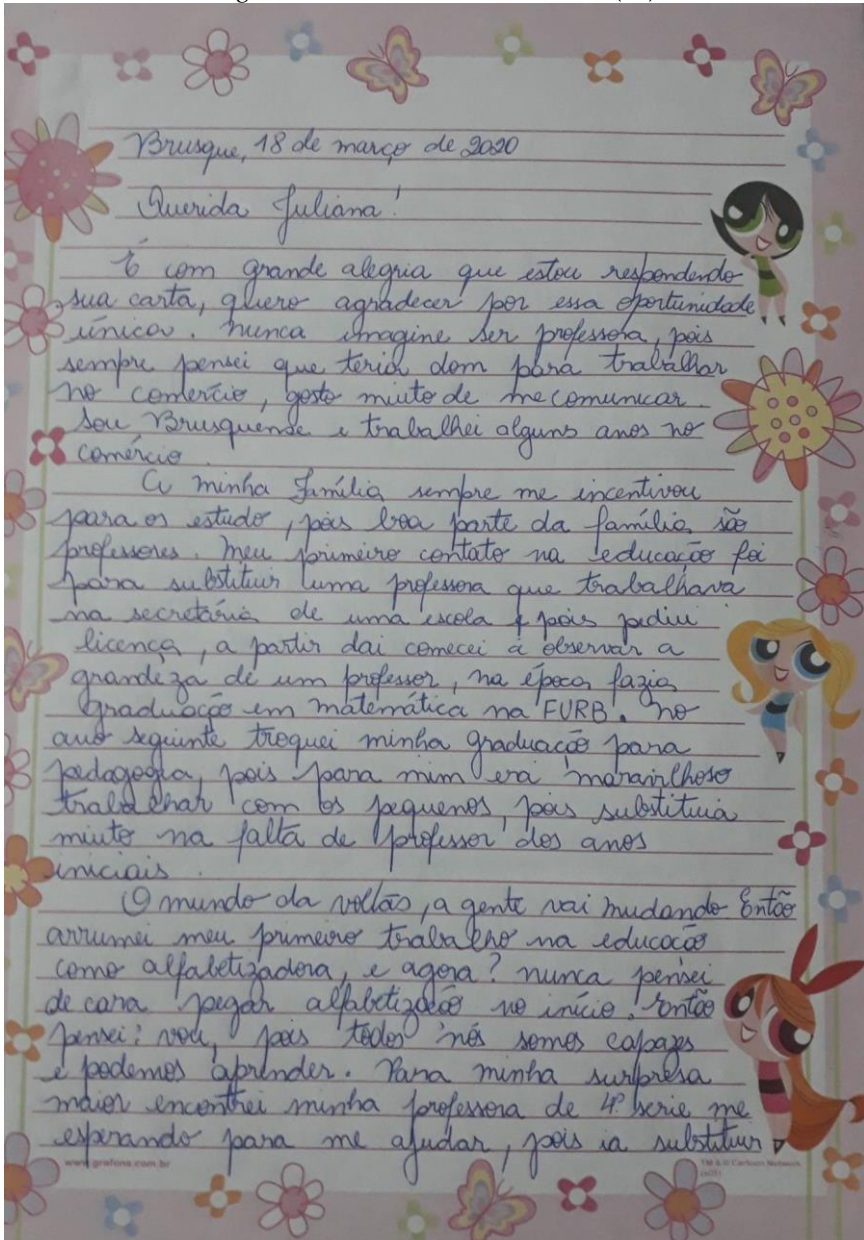 Brusque, 18 de março de 2020
Querida Juliana!
É com grande alegria que estou respondendo
sua carta, quero agradecer por essa oportunidade
única. Nunca imagine ser professora, pois
sempre pensei que teria dom para trabalhar
no comércio, gosto miuto de me comunicar
sou Brusquense e trabalhei alguns anos no
comércio.
A minha família sempre me incentivou
para os estudo, pois boa parte da família são
professores. Meu primeiro contato na educação foi
para substituir uma professora que trabalhava
na secretária de uma escola pois pediu
licença, a partir dai comecei a observar a
grandeza de um professor, na época fazia
graduação em matemática na FURB. No
ano seguinte troquei minha graduação para
pedagogia, pois para mim era maravilhoso
trabalhar com os pequenos, pois substituia
miuto na falta de professor dos anos
iniciais.
O mundo da voltas, a gente vai mudando Então
arrumei meu primeiro trabalho na educação
como alfabetizadora, e agora? nunca pensei
de cara pegar alfabetização no início. Então
pensei: vou, pois todos nós somos capazes
e podemos aprender. Para minha surpresa
maior encontrei minha professora de 4ª serie me
esperando para me ajudar, pois ia substituir
www.grafons.com.br
TM & © Cartoon Network